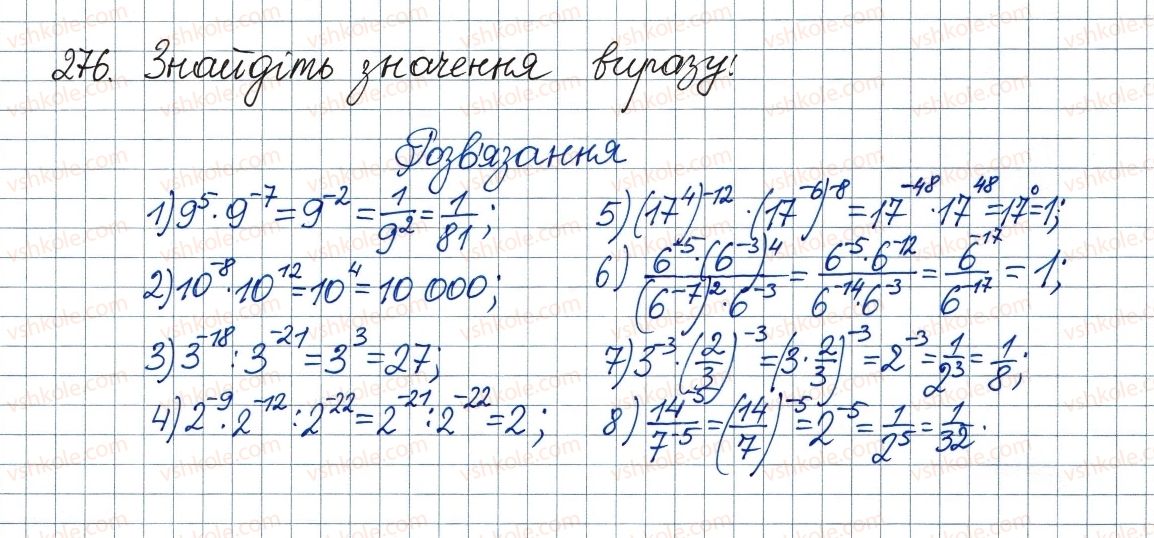 276. Знайдіть значення виразу:
Розв'язання
1) 9⁵·9⁻⁷=9⁻²=1/9²=1/81;
2) 10⁻⁸·10¹²=10⁴=10 000;
3) 3⁻¹⁸:3⁻²¹=3³=27;
4) 2⁻⁹·2⁻¹²:2⁻²²=2⁻²¹:2⁻²²=2;
5) (17⁴)⁻¹²·(17⁻⁶)⁻⁸=17⁻⁴⁸·17⁴⁸=17⁰=1;
6) (6⁻⁵·(6⁻³)⁴)/((6⁻⁷)²·6⁻³)=(6⁻⁵·6⁻¹²)/(6⁻¹⁴·6⁻³)=6⁻¹⁷/6⁻¹⁷=1;
7) 3⁻³·(2/3)⁻³=(3·2/3)⁻³=2⁻³=1/2³=1/8;
8) 14⁻⁵/7⁻⁵=(14/7)⁻⁵=2⁻⁵=1/2⁵=1/32.
vshkole.com